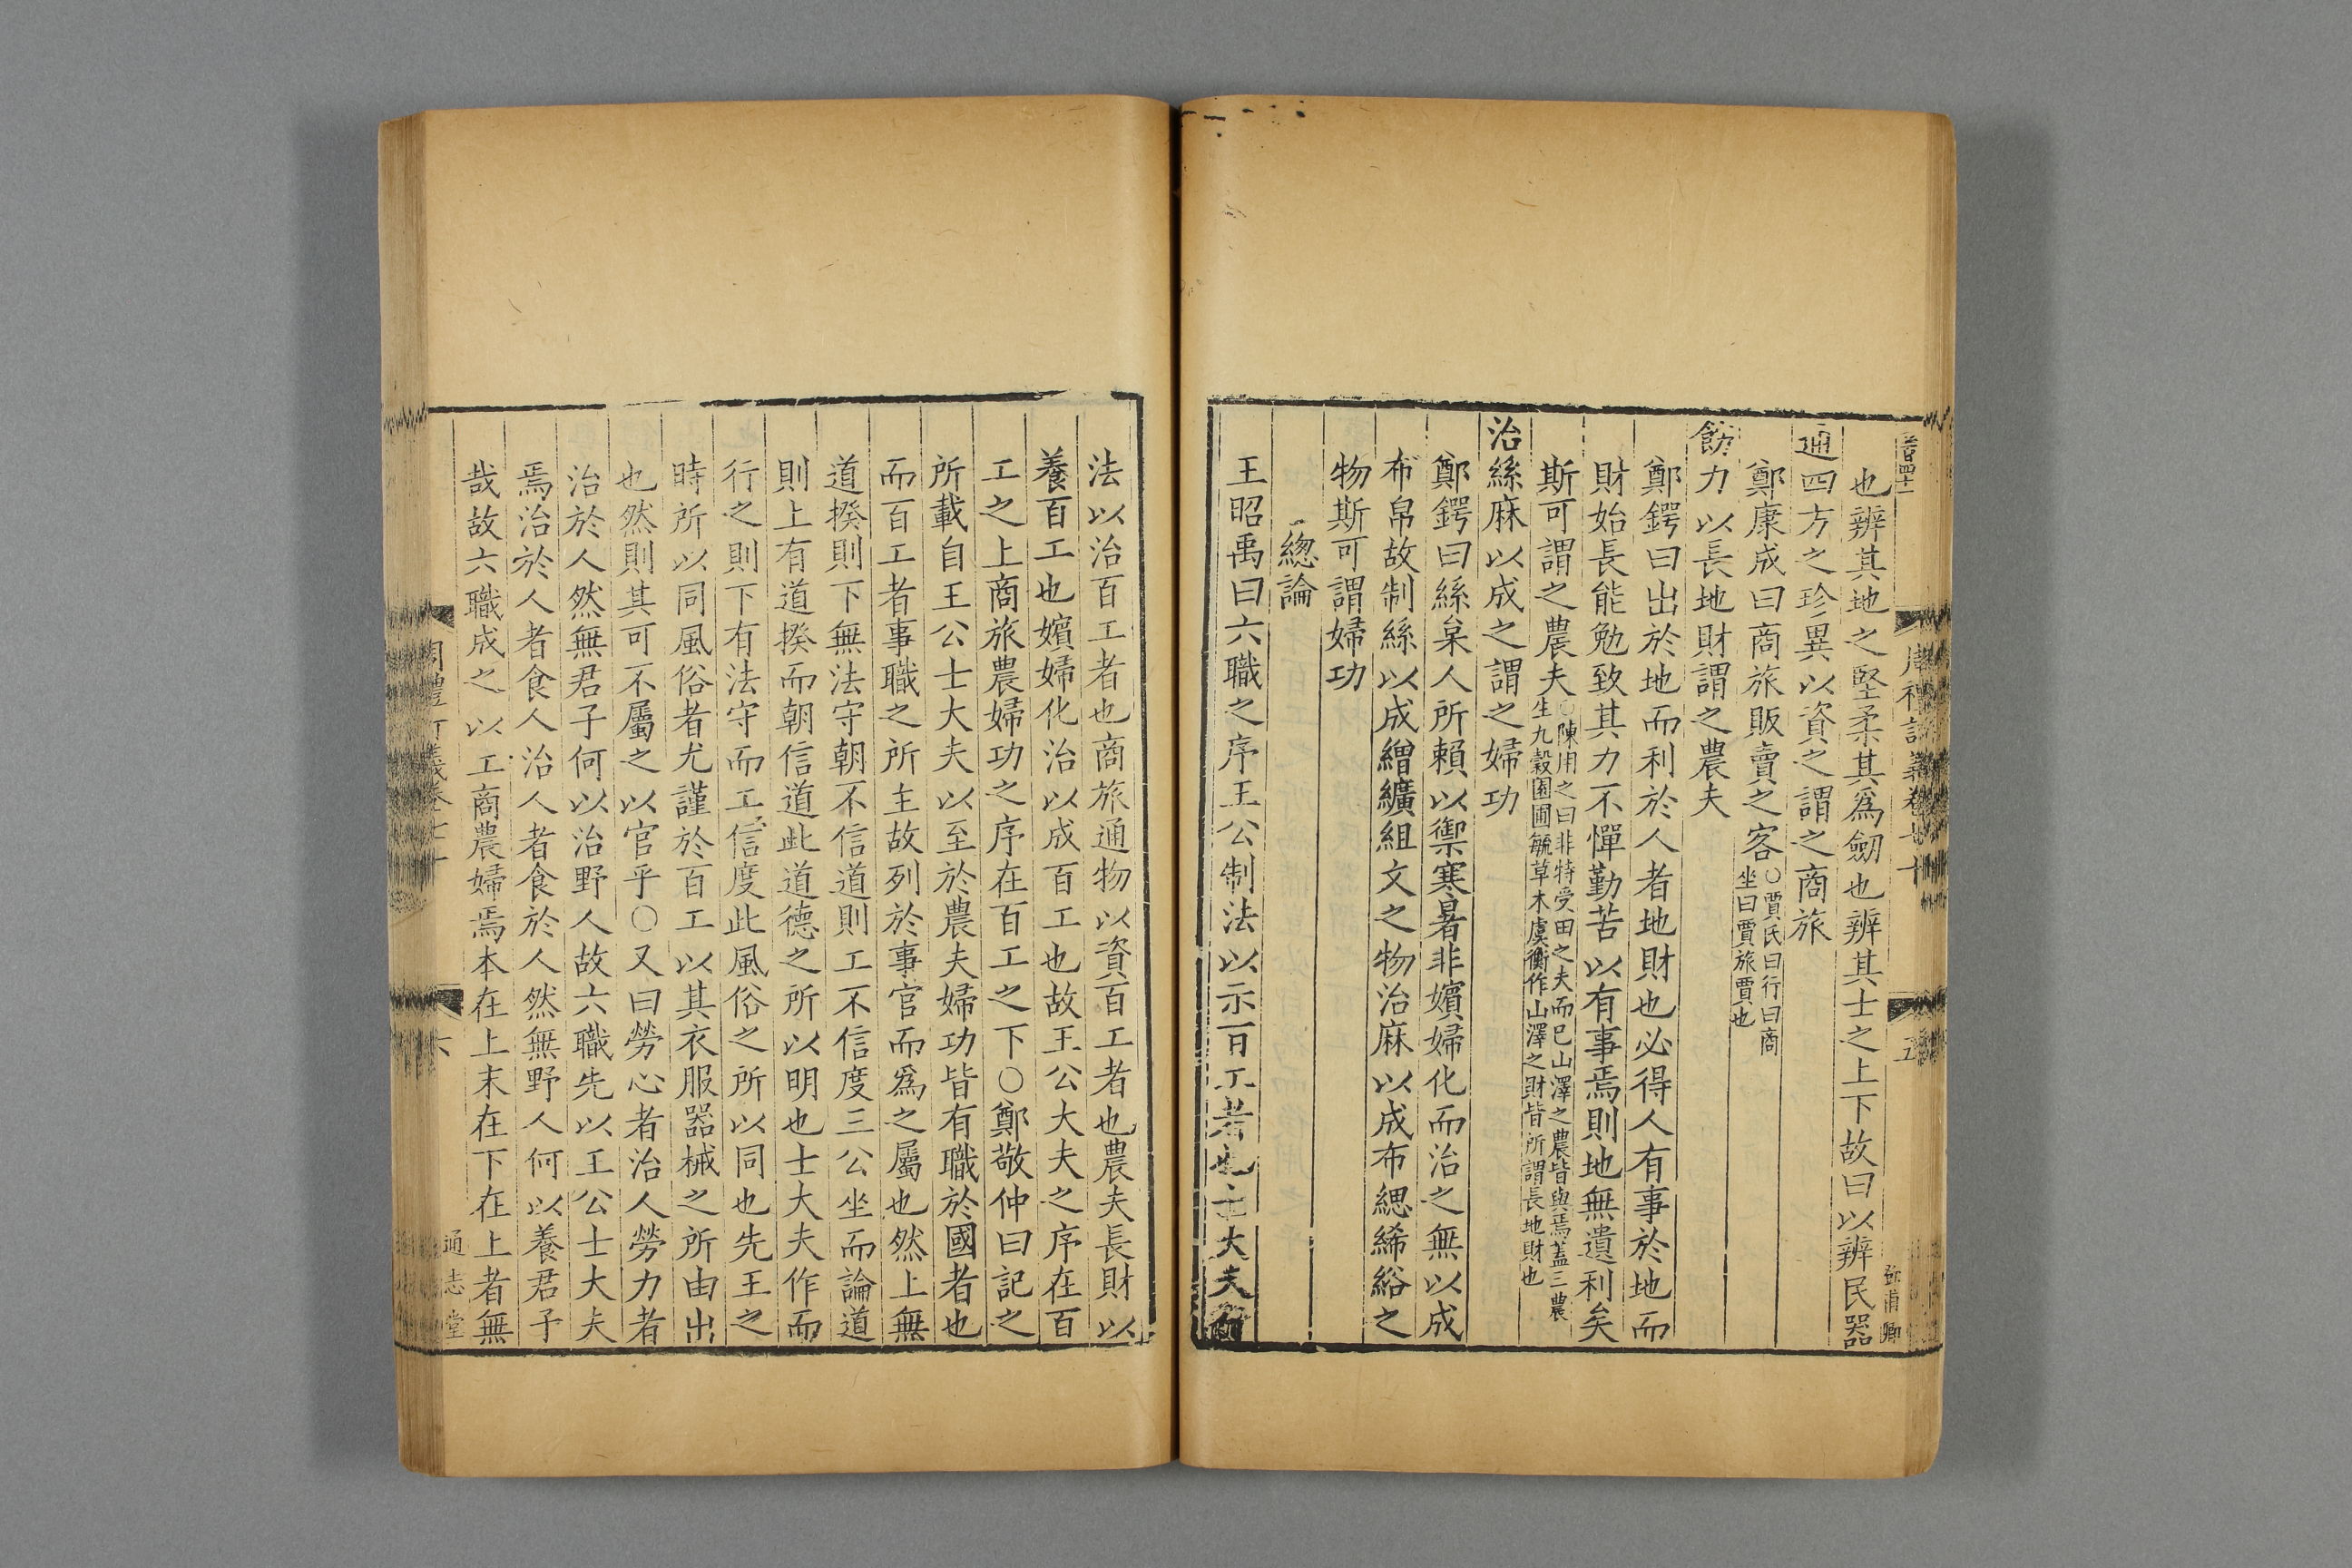 也辨其地之堅柔其爲劒也辨其士之上下故曰以辨民器
通四方之珍異以資之謂之商旅
鄭康成曰商旅販賣之客○賈氏曰行曰商
坐曰賈旅賈也
飭力以長地財謂之農夫
鄭鍔曰出於地而利於人者地財也必得人有事於地而
財始長能勉致其力不憚勤苦以有事焉則地無遺利矣
斯可謂之農夫○陳用之曰非特受田之夫而已山澤之農皆與焉蓋三農
生九穀園圃毓草木虞衡作山澤之財皆所謂長地財也
治絲麻以成之謂之婦功
鄭鍔曰絲枲人所賴以禦寒暑非嬪婦化而治之無以成
布帛故制絲以成繒纊組文之物治麻以成布緦絺綌之
物斯可謂婦功
總論
王昭禹曰六職之序王公制法以示百工者也士大夫
法以治百工者也商旅通物以資百工者也農夫長財以
養百工也嬪婦化治以成百工也故王公大夫之序在百
工之上商旅農婦功之序在百工之下○鄭敬仲曰記之
所載自王公士大夫以至於農夫婦功皆有職於國者也
而百工者事職之所主故列於事官而爲之屬也然上無
道揆則下無法守朝不信道則工不信度三公坐而論道
則上有道揆而朝信道此道德之所以明也士大夫作而
行之則下有法守而工信度此風俗之所以同也先王之
時所以同風俗者尤謹於百工以其衣服器械之所由出
也然則其可不屬之以官乎○又曰勞心者治人勞力者
治於人然無君子何以治野人故六職先以王公士大夫
焉治於人者食人治人者食於人然無野人何以養君子
哉故六職成之以工商農婦焉本在上末在下在上者無
六
通志堂